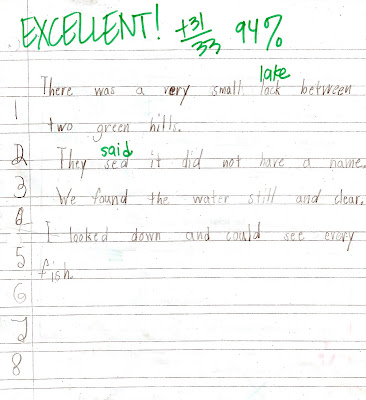 EXCELLENT! +31/33 94%
lake
There was a very small lack between
1
two green hills.
said
2 They sed it did not have a name.
3 We found the water still and clear.
4 I looked down and could see every
5 fish.
6
7
8